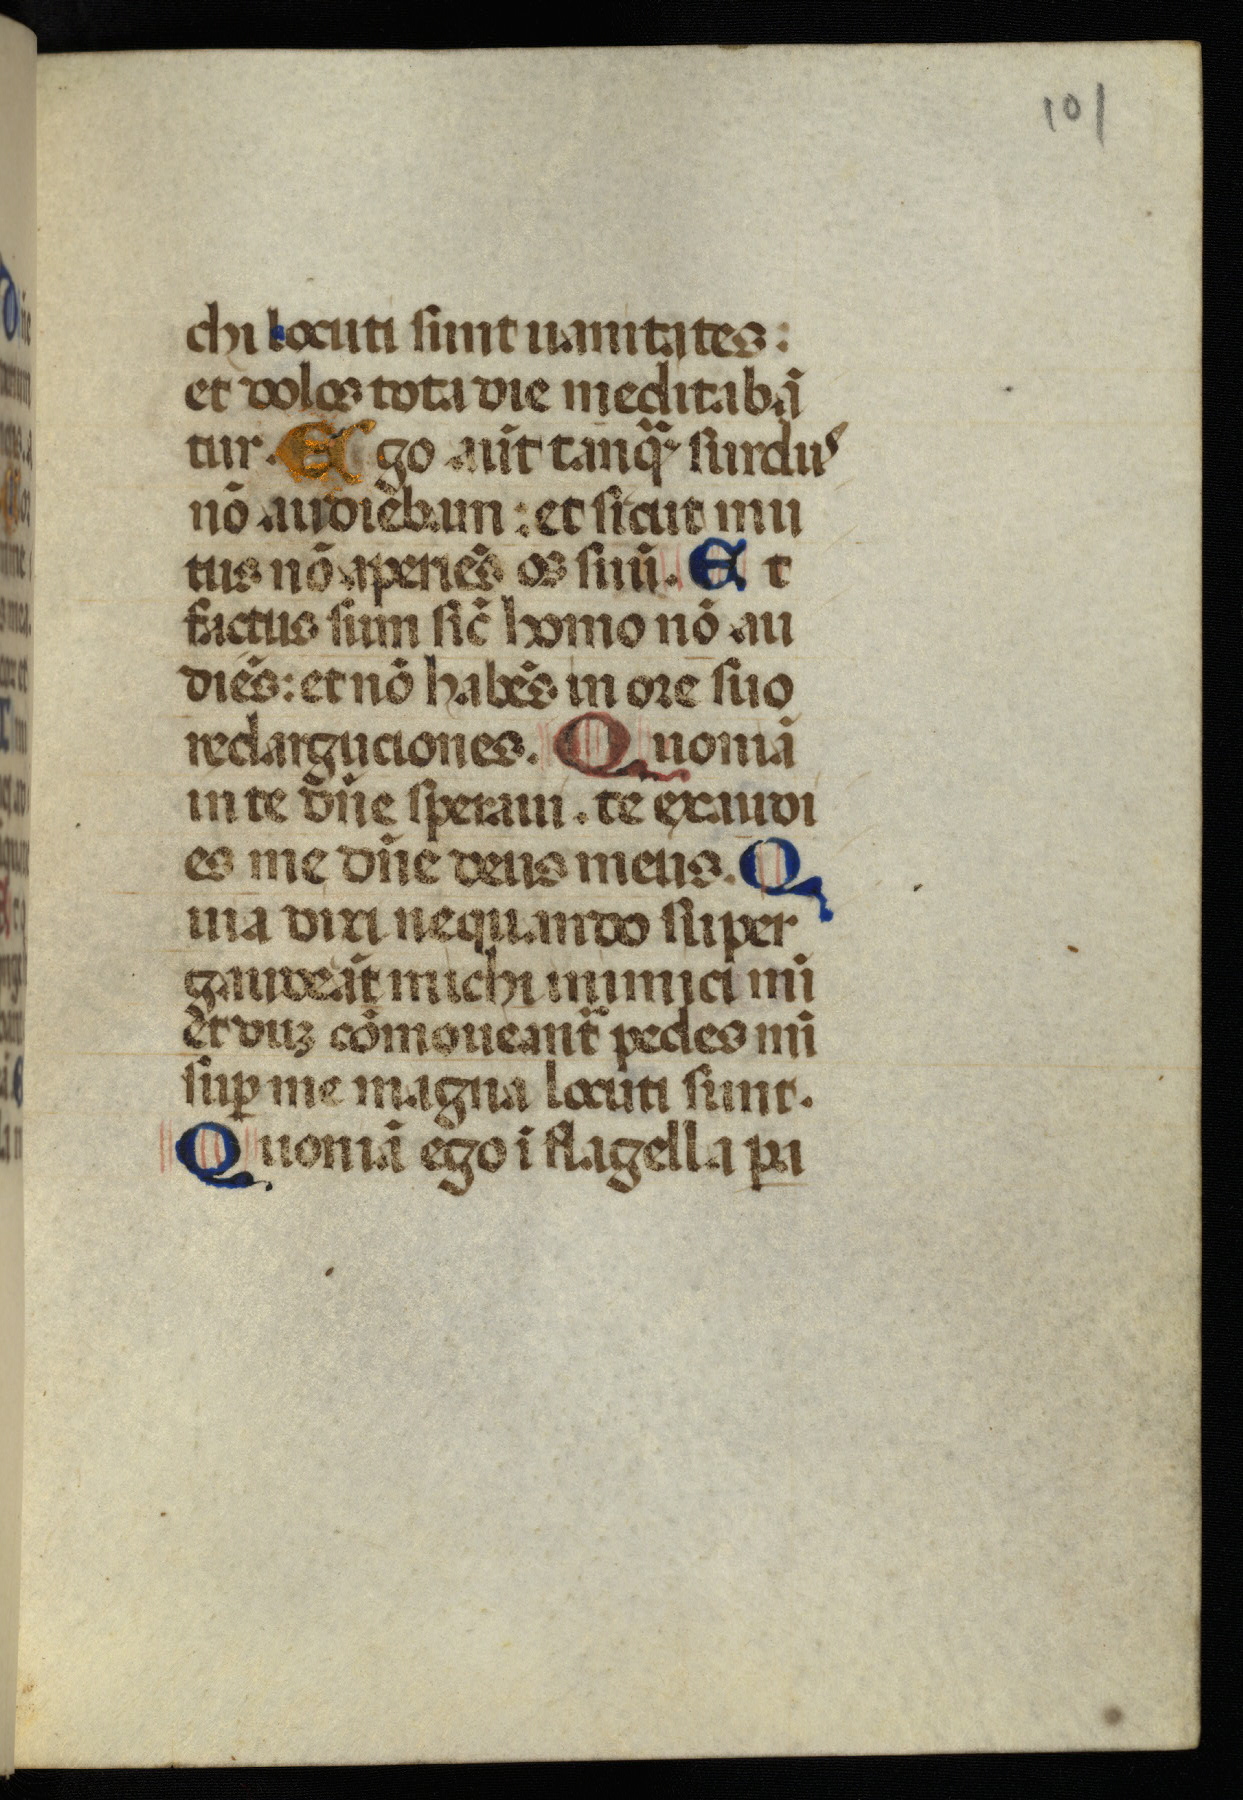 101
chi locuti sunt uanitates:
et dolos tota die meditabā
tur. Ego aūt tanq̄ᷓ surdus
nō audiebam: et sicut mu
tus nō aperiēs os suū. Et
factus sum sic̄ homo nō au
diēs: et nō habēs in ore suo
redarguciones. Quoniā
in te dn̄e speraui. te exaudi
es me dn̄e deus meus. Q
uia dixi nequando super
gaudeāt michi inimici mī
et duꝫ cōmoueant̄ pedes mī
suꝑ me magna locuti sunt.
Quoniā ego ī flagella pa